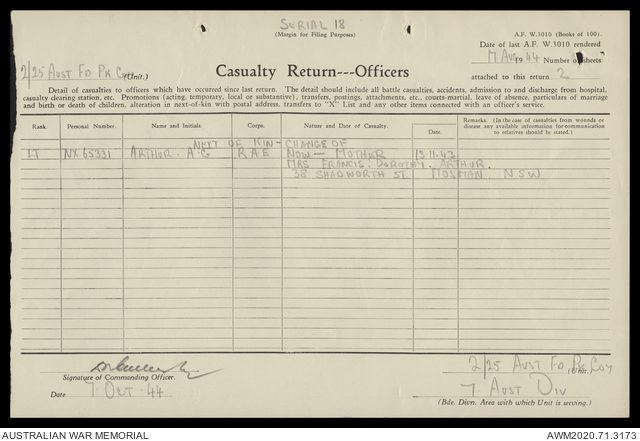 SERIAL 18
(Margin for Filing Purposes)
A.F. W.3010 (Books of 100).
Date of last A.F. W.3010 rendered
1944 Number of sheets
attached to this return 2
2/25 AUST FD PK COY (Unit.)
Casualty Return---Officers
Detail of casualties to officers which have occurred since last return. The detail should include all battle casualties, accidents, admission to and discharge from hospital,
casualty clearing station, etc. Promotions (acting, temporary, local or substantive), transfers, postings, attachments, etc., courts-martial, leave of absence, particulars of marriage
and birth or death of children, alteration in next-of-kin with postal address, transfers to "X" List and any other items connected with an officer's service.
Rank. Personal Number. Name and Initials. Corps. Nature and Date of Casualty. Date. Remarks. (In the case of casualties from wounds or
disease any available information for communication
to relatives should be stated.)
NEXT OF KIN - CHANGE OF
LT NX 65331 ARTHUR. A G RAE NOW - MOTHER 13.11.43
MRS FRANCIS. DOROTHY. ARTHUR.
38 SHADWORTH ST. MOSMAN. NSW
Signature of Commanding Officer.
Date 7 OCT 44
2/25 AUST FD PK COY (Unit.)
7. AUST DIV
(Bde. Divn. Area with which Unit is serving.)
AUSTRALIAN WAR MEMORIAL
AWM2020.71.3173